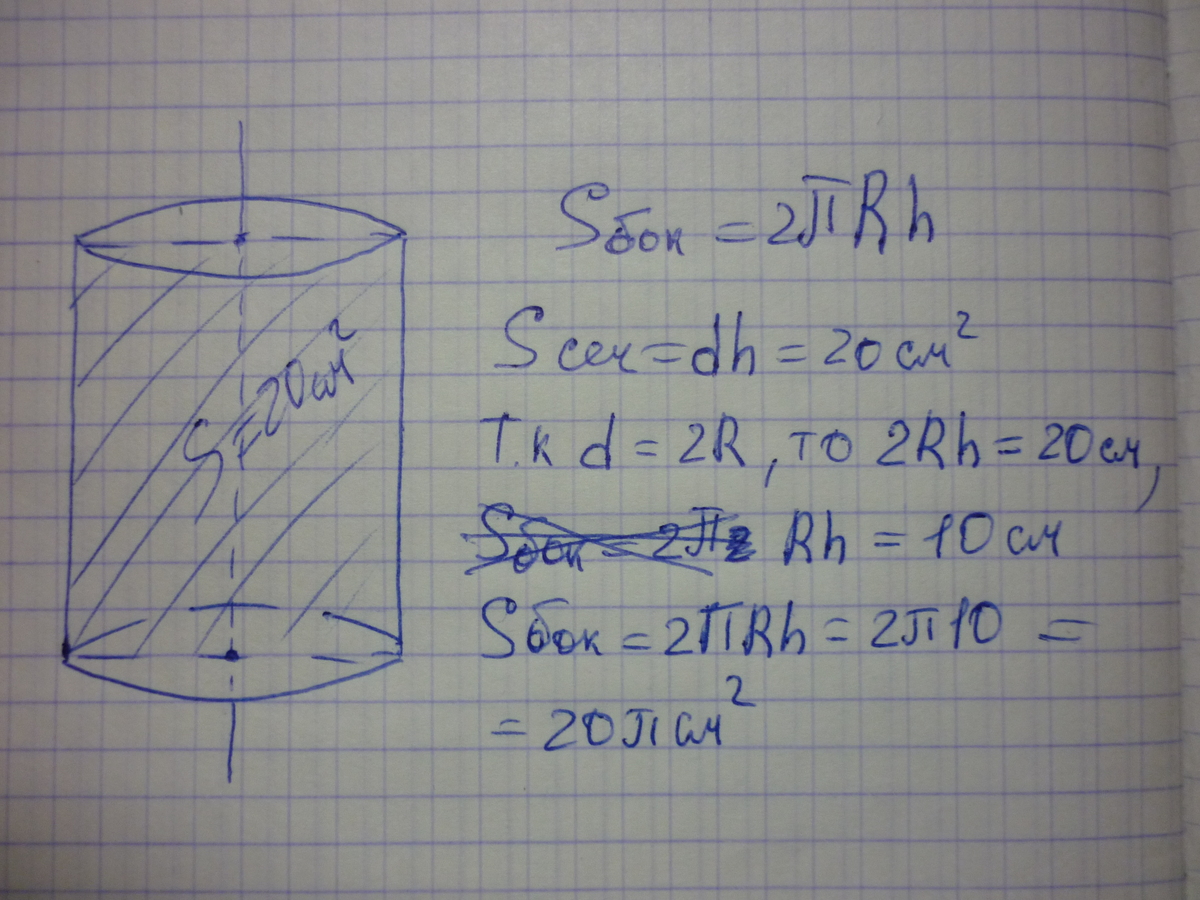 S=20см²
Sбок = 2πRh
Sсеч = dh = 20см²
Т.к d = 2R, то 2Rh = 20см,
Sбок = 2π2 Rh = 10см
Sбок = 2πRh = 2π10 =
= 20πсм²